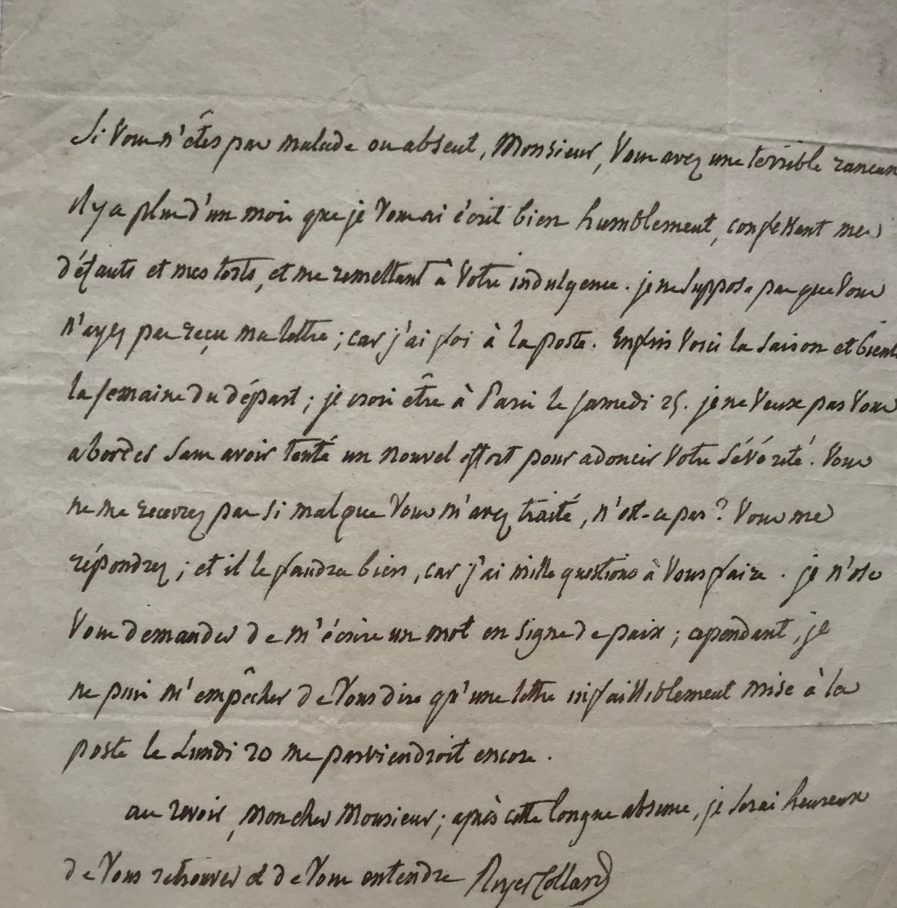 Si Vous n'êtes pas malade ou absent, Monsieur, Vous avez une terrible rancun
il y a plus d'un mois que je Vous ai écrit bien humblement, confessant mes
défauts et mes torts, et me remettant à Votre indulgence. je ne suppose pas que Vous
n'ayez pas reçu ma lettre; car j'ai foi à la poste. Enfin Voici la saison et bient
la semaine du départ; je crois être à Paris le samedi 25. je ne Veux pas Vous
aborder sans avoir tenté un nouvel effort pour adoucir Votre sévérité. Vous
ne me recevrez pas si mal que Vous m'avez traité, n'est-ce pas? Vous me
répondrez; et il le faudra bien, car j'ai mille questions à Vous faire. je n'ose
Vous demander de m'écrire un mot en signe de paix; cependant, je
ne puis m'empêcher de Vous dire qu'une lettre infailliblement mise à la
poste le Lundi 20 me parviendroit encore.
au revoir, Mon cher Monsieur; après cette longue absence, je serai heureux
de Vous retrouver et de Vous entendre Royer Collard